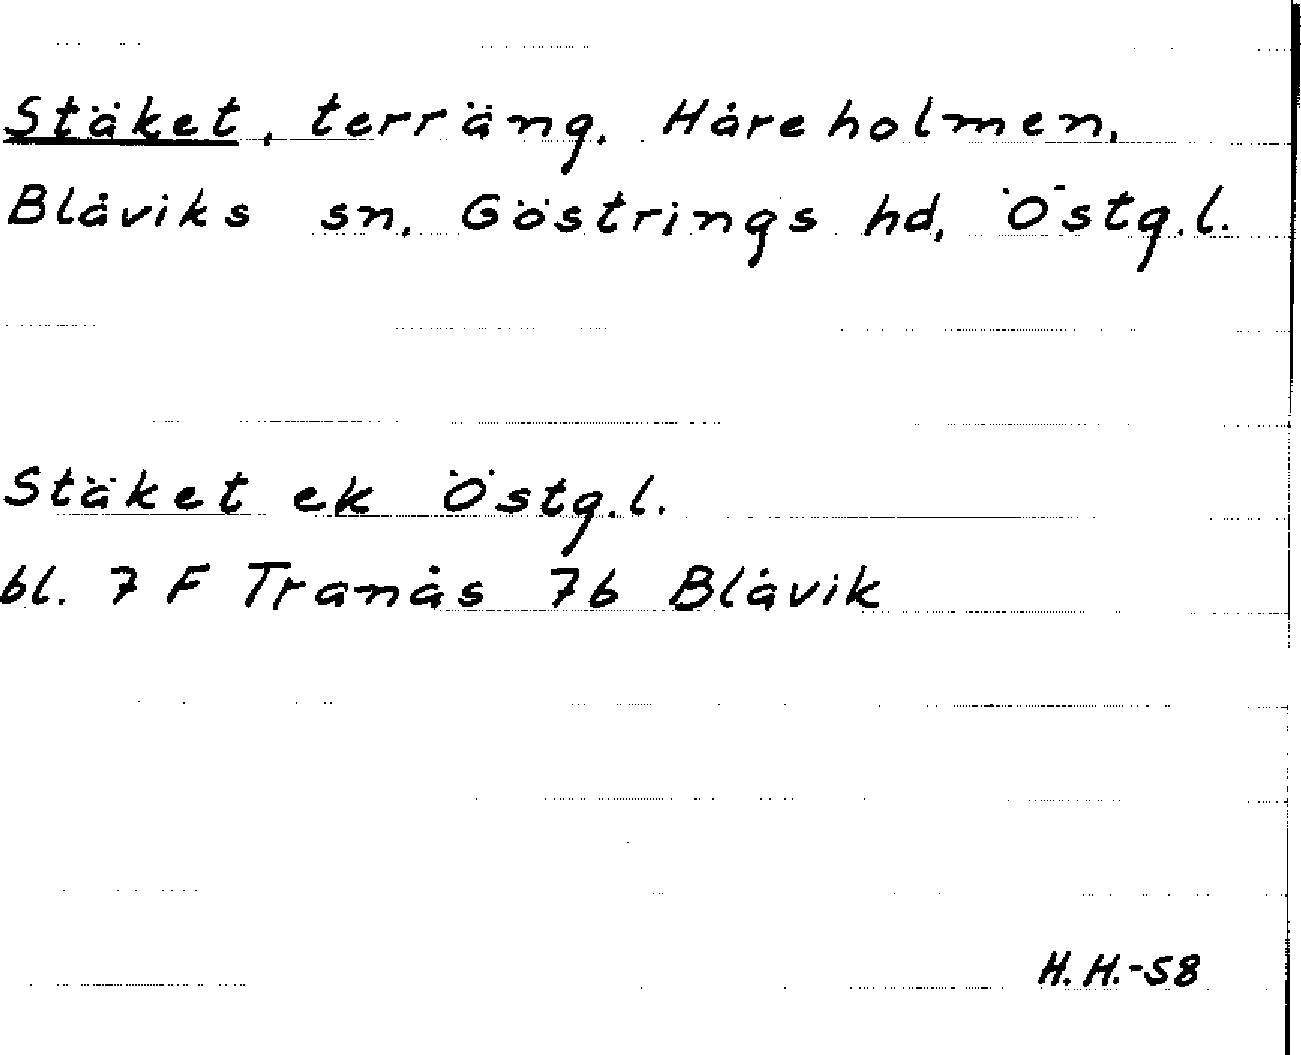 Stäket, terräng, Håreholmen,
Blåviks sn, Göstrings hd, Östg.l.
Stäket ek Östg.l.
bl. 7 F Tranås 7b Blåvik
H.H.-58